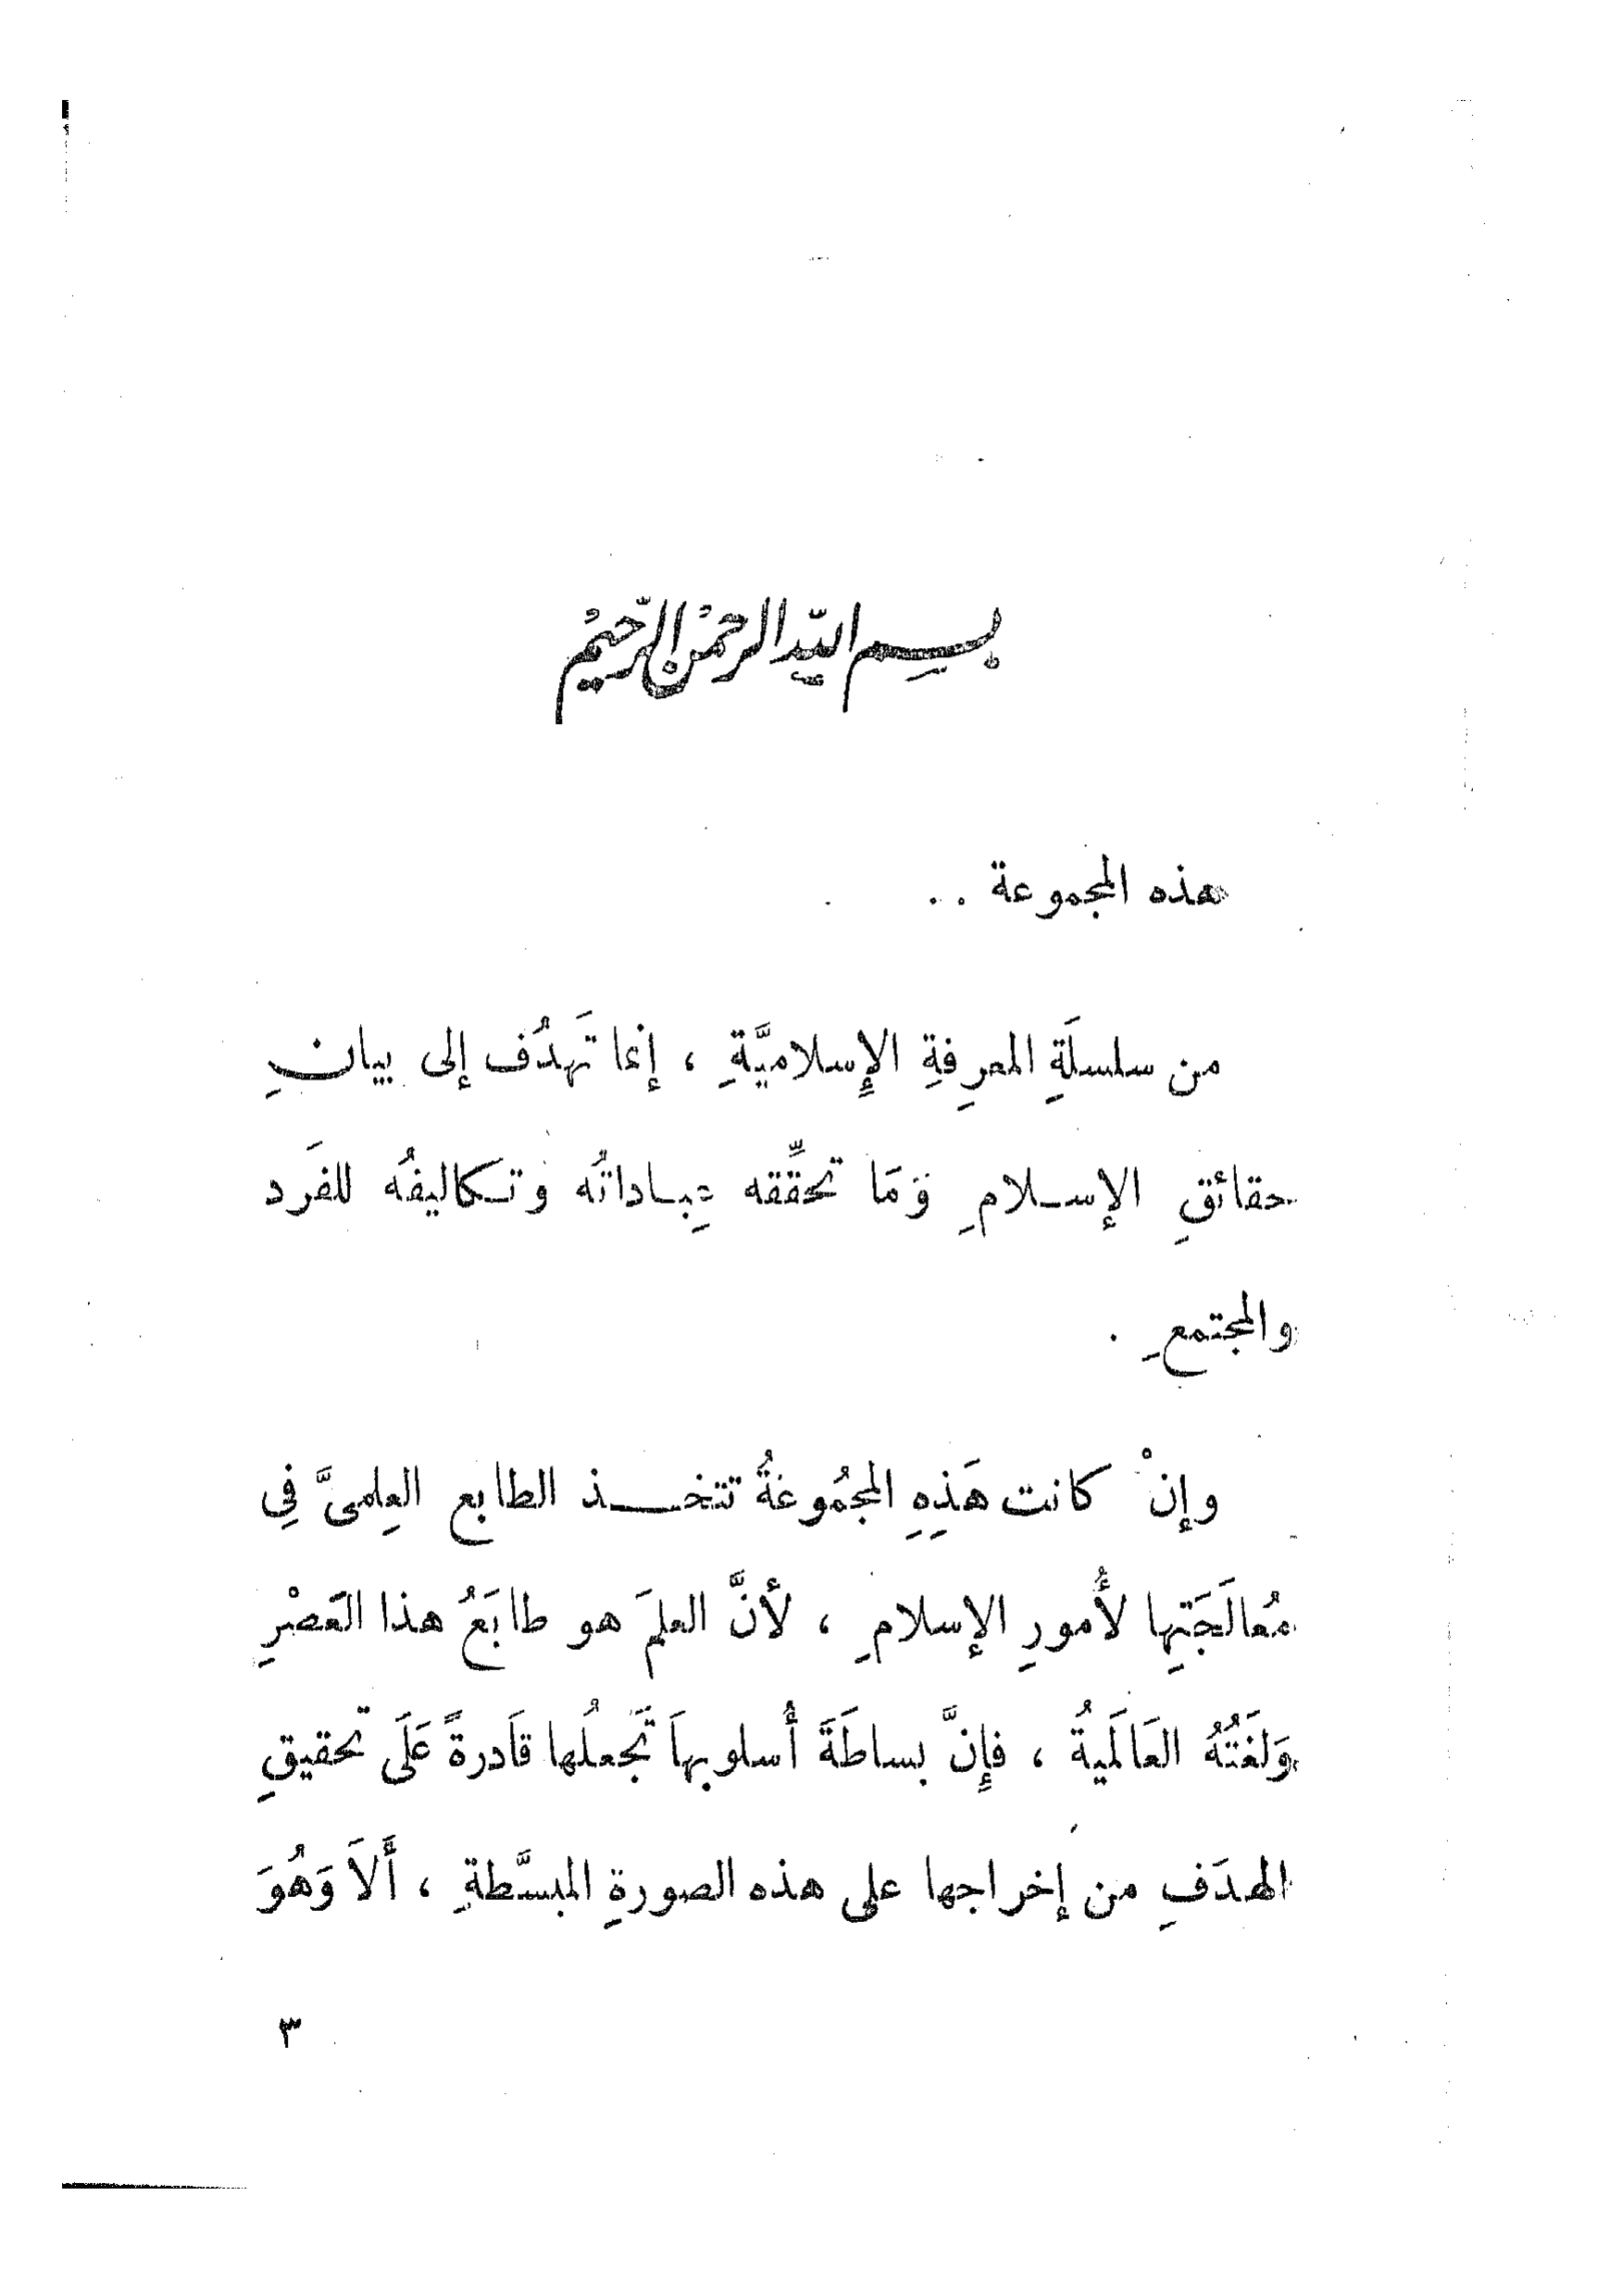 بسم الله الرحمن الرحيم
هذه المجموعة ..
من سلسلَةِ المعرِفةِ الإِسلاميَّةِ ، إنما تَهدُف إلى بيانِ
حقائقِ الإسلامِ وَمَا تحقِّقه عِباداتُه وتكاليفُه للفَرد
والمجتمعِ .
وإنْ كانت هَذِهِ المجمُوعةُ تتخذ الطابع العِلمىَّ فِي
مُعالَجَتِها لأُمورِ الإسلامِ ، لأنَّ العلمَ هو طابَعُ هذا العَصْرِ
وَلغَتُهُ العَالَميةُ ، فإِنَّ بساطَةَ أُسلوبهاَ تَجعلُها قَادرةً عَلَى تحقيقِ
الهدَفِ من إخراجها على هذه الصورةِ المبسَّطةِ ، أَلاَ وَهُوَ
٣